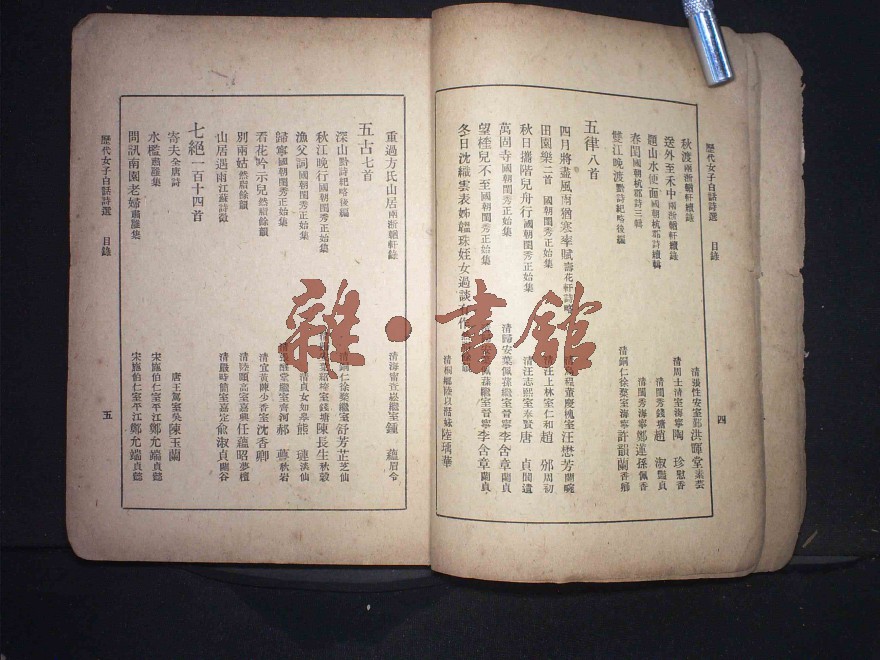 歷代女子白話詩選 目錄
四
秋渡兩浙輶軒續錄 清張性安室鄞洪暉堂素芸
送外至禾中兩浙輶軒續錄 清周士清室海寧陶 珍慰香
題山水便面國朝杭郡詩續輯 清閨秀錢塘趙 淑豔貞
春閨國朝杭郡詩三輯 清閨秀海寧鄭蓮孫佩香
雙江晚渡黔詩紀略後編 清銅仁徐棻室海寧許韻蘭香鄉
五律八首
四月將盡風雨猶寒率賦壽花軒詩略 董慶槐室汪懋芳蘭畹
田園樂二首 國朝閨秀正始集 汪上林室仁和趙 邠周初
秋日攜階兒舟行國朝閨秀正始集 清汪志熙室奉賢唐 貞聞遠
萬固寺國朝閨秀正始集 清歸安葉佩蓀繼室晉寧李含章蘭貞
望桂兒不至國朝閨秀正始集 佩蓀繼室晉寧李含章蘭貞
冬日沈織雲表姊韞珠姪女過談有作 清桐鄉陸 妹陸瑀華
重過方氏山居兩浙輶軒錄 清海寧 繼室鍾 蘊眉令
五古七首
深山黔詩紀略後編 清銅仁徐棻繼室舒芳芷芝仙
秋江晚行國朝閨秀正始集 室錢塘陳長生秋穀
漁父詞國朝閨秀正始集 清貞女如皋熊 璉澹仙
歸寧國朝閨秀正始集 堂繼室齊河郝 秋岩
看花吟示兒然脂餘韻 清宜黃陳少香室沈香卿
別兩姑然脂餘韻 清陸 高室嘉興任蘊昭夢檀
山居遇雨江蘇詩徵 清嚴時 室嘉定俞淑貞幽谷
七絕一百十四首
寄夫全唐詩 唐王駕室吳陳玉蘭
水檻肅雝集 宋施伯仁室平江鄭允端貞懿
問訊南園老婦肅雝集 宋施伯仁室平江鄭允端貞懿
歷代女子白話詩選 目錄
五
雜·書館